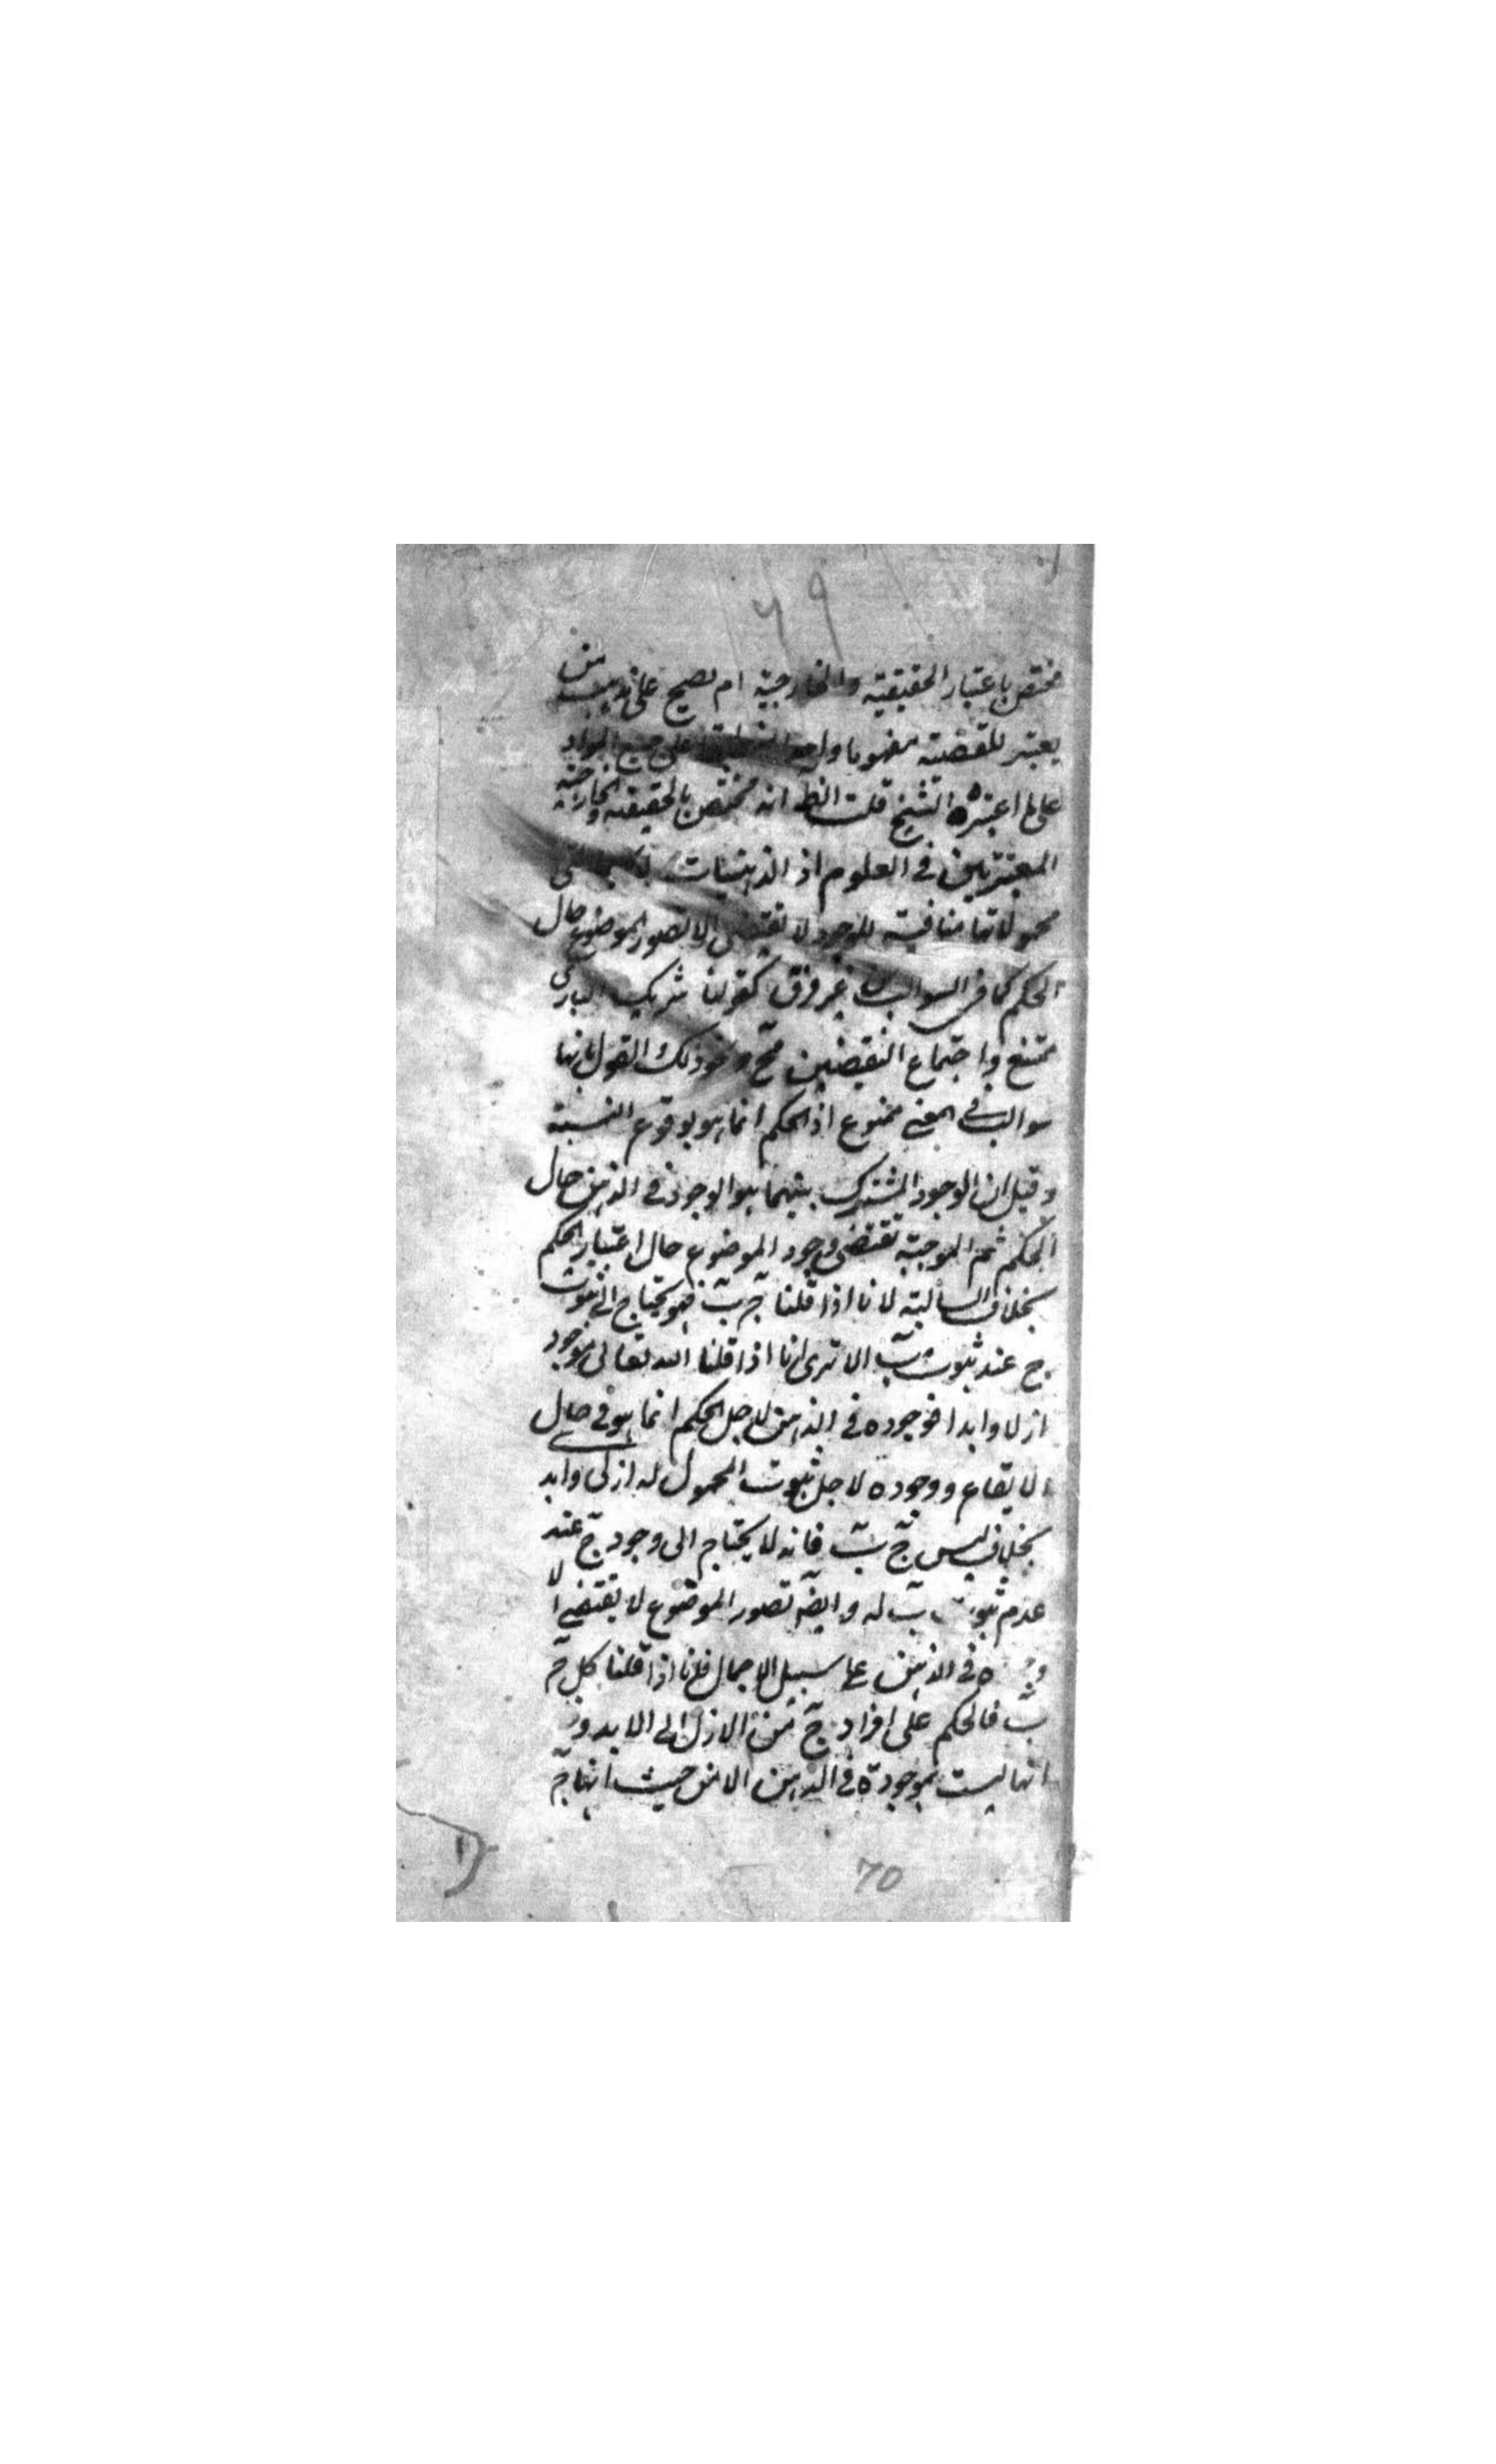 ٦٩
مختص باعتبار الحقيقية والخارجية ام يصح على مذهب من
يعتبر للقضية مفهوما على جميع المواد
على ما اعتبره الشيخ قلت الظ انه مختص بالحقيقة والخارجية
المعتبرين في العلوم اذ الذهنيات
محمولاتها منافية للوجود لا تقتضي الا تصور الموضوع حال
الحكم كما في السوالب من غير فرق كقولنا شريك الباري
ممتنع واجتماع النقيضين مح ونحو ذلك القول بانها
سوالب في المعنى ممنوع اذ الحكم انما هو بوقوع النسبة
وقيل ان الوجود المشترك بينهما هو الوجود في الذهن حال
الحكم ثم الموجبة تقتضي وجود الموضوع حال اعتبار الحكم
بخلاف السالبة لانا اذا قلنا ج ب فهو يحتاج الى ثبوت
ج عند ثبوت ب الا ترى انا اذا قلنا الله تعالى موجود
ازلا وابدا فوجوده في الذهن لاجل الحكم انما هو في حال
الايقاع ووجوده لاجل ثبوت المحمول له ازلى وابد
بخلاف ليس ج ب فانه لا يحتاج الى وجود ج عند
عدم ثبوت ب له وايضه تصور الموضوع لا يقتضي الا
في الذهن على سبيل الاجمال فانا اذا قلنا كل ج
ب فالحكم على افراد ج من الازل الى الابد
انها ليست بموجودة في الذهن الا من حيث انها ج
70